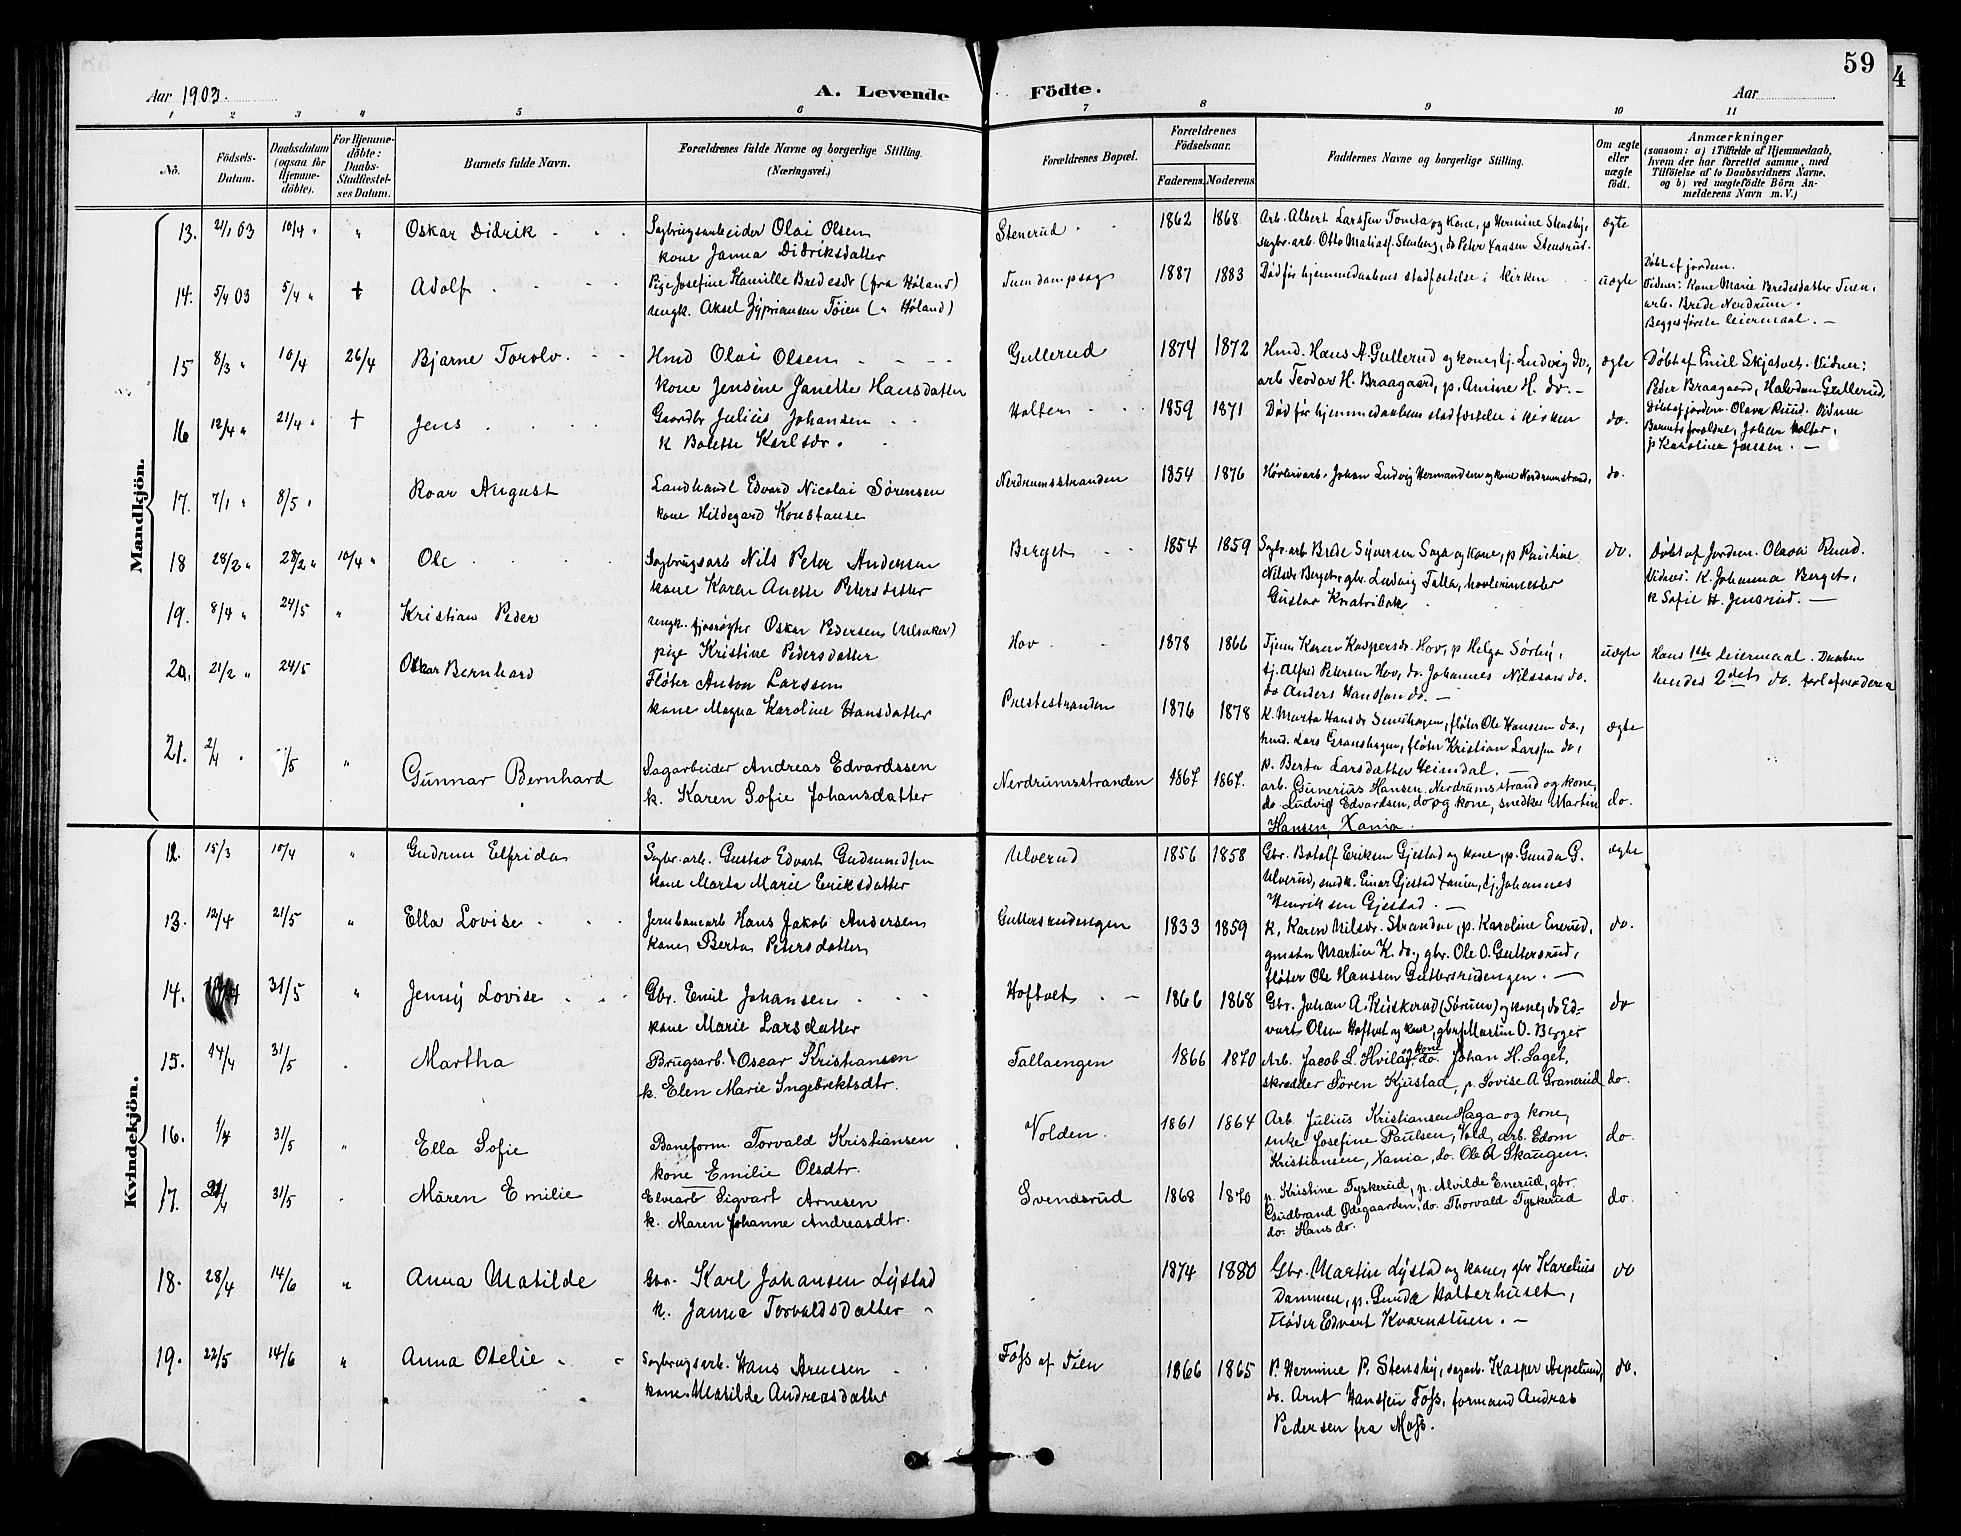 59
4
Aar 1903.
A. Levende
Födte.
Aar
1 2 3 4 5 6 7 8 9 10 11
No.
Födsels-Datum.
Daabsdatum (ogsaa for Hjemmedöbte).
For Hjemmedöbte: Daabs-Stadfæstelses Datum.
Barnets fulde Navn.
Forældrenes fulde Navne og borgerlige Stilling. (Næringsvei.)
Forældrenes Bopæl.
Forældrenes Födselsaar.
Faderens. Moderens.
Faddernes Navne og borgerlige Stilling.
Om ægte eller uægte födt.
Anmærkninger
(saasom: a) i Tilfælde af Hjemmedaab, hvem der har forrettet samme, med Tilföielse af to Daabsvidners Navne, og b) ved uægtefödte Börn Anmelderens Navn m. V.)
Mandkjön.
13. 21/1 03 10/4 " " Oskar Didrik Sagbrugsarbeider Olai Olsen Stenerud 1862 1868 Arb. Albert Larssen Tomta og Kone, p Hermine Stensby, ægte
kone Janna Didriksdatter sagbr. arb. Otto Matiass. Stenberg, do Peter Hansen Stensrud.
14. 5/4 03 5/4 " + Adolf Pige Josefine Kamille Bredesdr (fra Høland) Tuen dampsag 1887 1883 Død før hjemmedaabens stadfæstelse i Kirken uægte Døbt af jordem.
ungk. Aksel Zypriansen Tøien (" Høland) Vidner: Kone Marie Bredesdatter Tuen,
arb. Brede Nerdrum.
Begges første leiermaal. —
15 8/3 " 10/4 26/4 Bjarne Torolv Hmd Olai Olsen Gullerud 1874 1872 Hmd. Hans A. Gullerud og kone, tj. Ludvig do, ægte Døbt af Emil Skjatvet. Vidner:
kone Jensine Janette Hansdatter arb Teodor H. Braagaard, p. Amine H. do. — Peder Braagaard, Halvdan Gullerud.
16 12/4 " 21/4 " + Jens Gaardbr Julius Johansen Holter 1859 1871 Død før hjemmedaabens stadfæstelse i kirken do. Døbt af jordem. Olava Ruud. Vidner
k Bolette Karlsdr. Barnets forældre, Johan Holter,
p Karoline Jensen. —
17. 7/1 " 8/5 " Roar August Landhandl Edvard Nicolai Sørensen Nerdrumsstranden 1854 1876 Høvleriarb. Johan Ludvig Hermandsen og kone Nerdrumstrand, do.
kone Hildegard Konstanse
18 28/2 " 28/2 " 10/4 " Ole Sagbrugsarb Nils Peter Andersen Berget 1854 1859 Sagbr. arb Brede Syversen Saga og kone, p Pauline do. Døbt af Jordem. Olava Ruud.
kone Karen Anette Petersdatter Nilsdr Berget, gbr. Ludvig Talla, høvlerimester Vidner: K. Johanna Berget,
Gustav Knatvibak. k Sofie H. Jensrud. —
19. 8/4 " 24/5 " Kristian Peder ungk. fjøsrøgter Oskar Pedersen (Ulsaker) Hov 1878 1866 Tjen. Karen Kaspersdr. Hov, p Helga Sørby, uægte Hans 1ste leiermaal. Daaben
pige Kristine Pedersdatter tj. Alfred Petersen Hov, do. Johannes Nilsson do. hendes 2det do.
do Anders Hanssen do. —
20. 21/2 " 24/5 Oskar Bernhard Fløter Anton Larssen Prestestranden 1876 1878 ægte
kone Magna Karoline Hansdatter K. Marta Hansdr fløter Ole Hanssen do,
hmd. Lars Granshagen, fløter Kristian Larssen do,
p. Berta Larsdatter Heimdal. —
21. 2/4 " /5 " Gunnar Bernhard Sagarbeider Andreas Edvardssen Nerdrumsstranden 1867 1867. arb. Gunerius Hansen, Nerdrumsstrand og kone, do.
k. Karen Sofie Johansdatter do Ludvig Edvardsen, do og kone, snedker Martin
Hansen, Xania.
Kvindekjön.
12. 15/3 10/4 " Gudrun Elfrida Sagbr. arb. Gustav Edvart Gudmundsen Ulverud 1856 1858 Gbr. Botolf Eriksen Gjestad og kone, p. Gunda G. ægte
kone Marta Marie Eriksdatter Ulverud, snedk. Einar Gjestad Xania, tj. Johannes
Henriksen Gjestad. —
13. 12/4 21/5 " Ella Lovise Jernbanearb Hans Jakob Andersen Guttersrudengen 1833 1859 k, Karen Nilsdr. Stranden, p. Karoline Enerud, do.
kone Berta Petersdatter Martin K. do., gbr. Ole O. Guttersrud,
fløter Ole Hanssen Guttersrudengen. —
14. 31/5 " Jenny Lovise Gbr. Emil Johansen Hoftvet 1866 1868 Gbr. Johan A. Kuskerud (Sørum) og kone, do Ed- do
kone Marie Larsdatter vart Olsen Hoftvet og kone, gbr Martin O. Berger
15. 14/4 31/5 Martha Brugsarb. Oscar Kristiansen Tallaengen 1866 1870 Arb. Jacob L. Hvila og kone, do. Johan H. Saget, do.
k. Elen Marie Ingebrektsdtr. skrædder Søren Kjustad, p. Lovise A. Granerud
16. 1/4 31/5 " Ella Sofie Baneform. Torvald Kristiansen Volden. 1861 1864 Arb Julius Kristiansen Haga og kone, do.
kone Emilie Olsdtr. enke Josefine Paulsen, Vold, arb. Edom
Kristiansen, Xania, do. Ole A Skaugen.
17. 21/4 31/5 Maren Emilie Elvearb Sigvart Arnesen Svendsrud 1868 1870 p. Kristine Tyskerud, p. Alvilde Enerud, gbr. do.
k. Maren Johanne Andreasdtr. Gudbrand Ødegaarden, do. Thorvald Tyskerud
do. Hans do.
18. 28/4 14/6 " Anna Matilde Gbr. Karl Johansen Lystad 1874 1880 Gbr. Martin Lystad og kone, gbr Karelius do
k. Janna Torvaldsdatter Dammen, p. Gunda Holterhuset,
Fløder Edvart Kvernstuen. —
19. 22/5 14/6 " Anna Otelie Sagbrugsarb. Hans Arnesen Foss af Tien 1866 1865 P. Hermine P. Stensby, sagarb. Kasper Aspelund, do.
kone Matilde Andreasdatter do. Arnt Hanssen Foss, formand Andreas
Pedersen fra Moss.